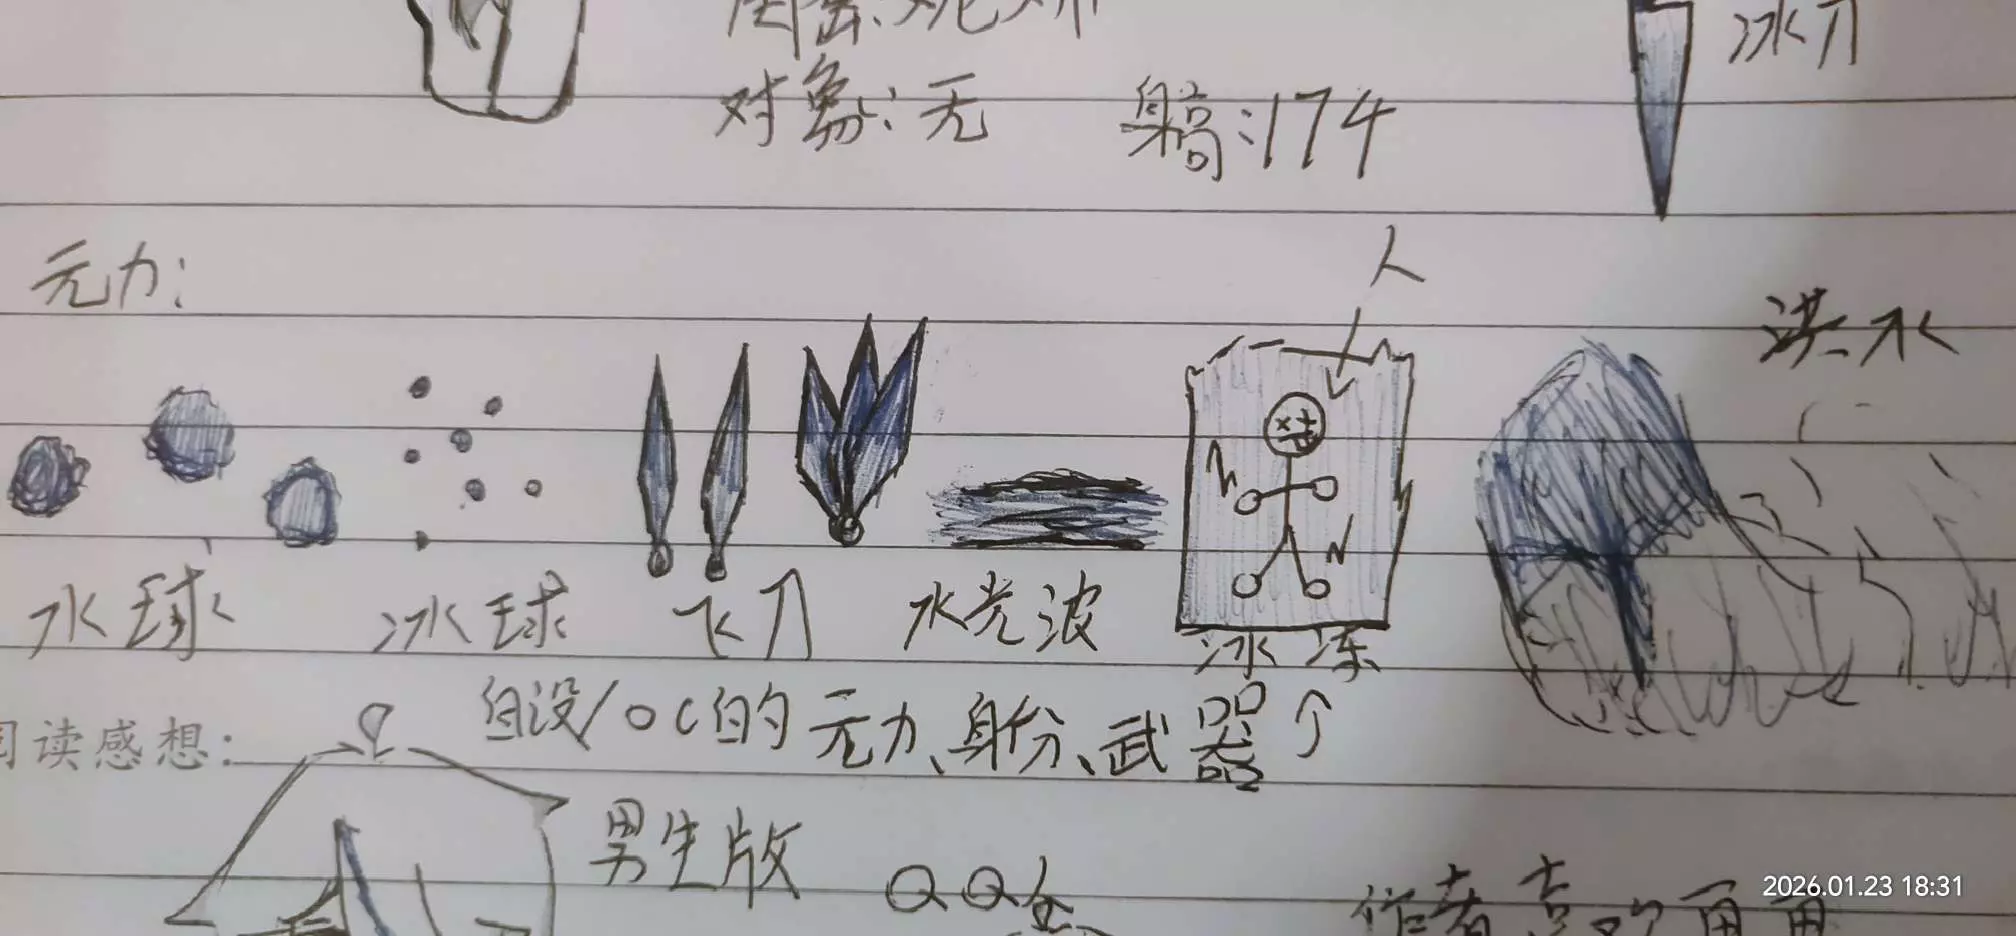 冰刀
对象:无 身高:174
元力:
人
洪水
水球 冰球 飞刀 水光波 冰冻
自设/oc的元力、身份、武器个
阅读感想:
男生版
QQ
作者喜欢画画
2026.01.23 18:31